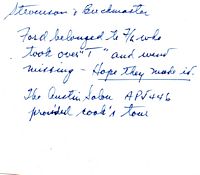 Stevenson & Buckmaster
Ford belonged to F/6 who
took over "T" and went
missing - Hope they made it.
The Austin Salon APV446
provided cook's tour